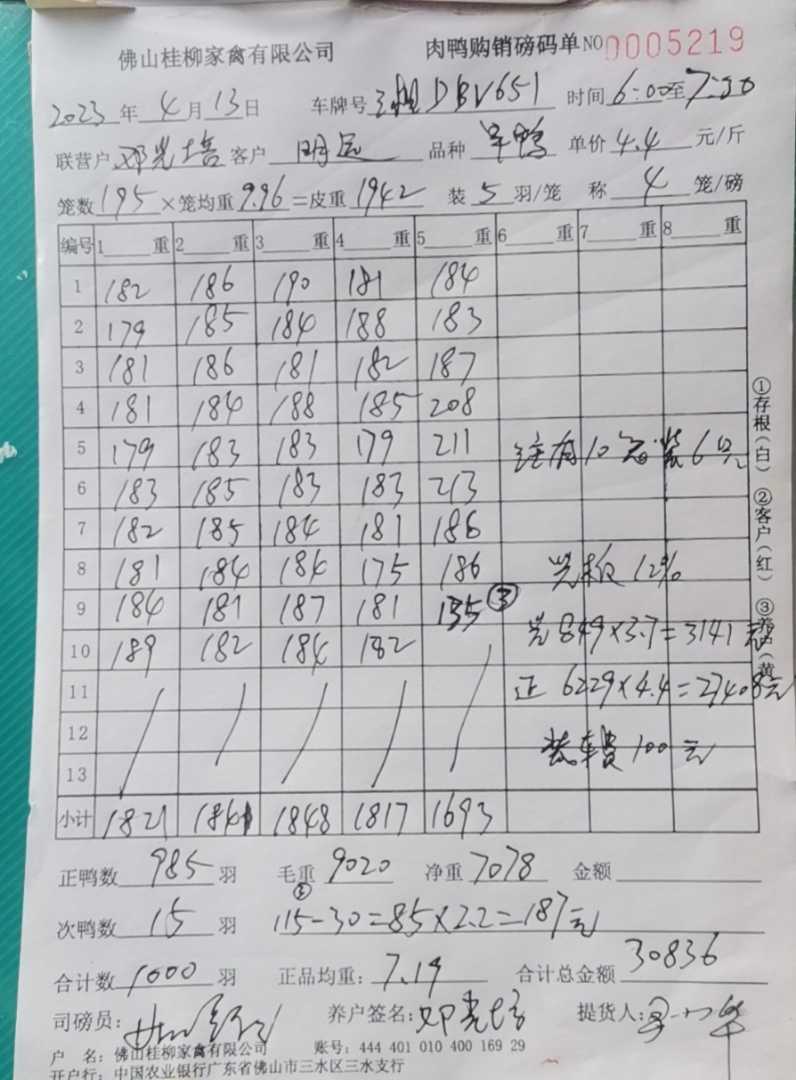 佛山桂柳家禽有限公司 肉鸭购销磅码单 NO 0005219
2023 年 4 月 13 日 车牌号 DBV651 时间 6:00 至 7:30
联营户 邓光培 客户 明辰 品种 单价 4.4 元/斤
笼数 195 ×笼均重 9.96 =皮重 1942 装 5 羽/笼 称 4 笼/磅
编号 1 重 2 重 3 重 4 重 5 重 6 重 7 重 8 重
1 182 186 190 181 184
2 179 185 184 188 183
3 181 186 181 182 187
4 181 184 188 185 208
5 179 183 183 179 211 注有10笼装6只
6 183 185 183 183 213
7 182 185 184 181 186
8 181 184 184 175 186 光板12%
9 184 181 187 181 135 ③ 光849×3.7=3141元
10 189 182 184 182
11 正6229×4.4=27408元
12 装车费100元
13
小计 1821 1841 1848 1817 1693
正鸭数 985 羽 毛重 9020 净重 7078 金额
次鸭数 15 羽 115-30=85×2.2=187元
合计数 1000 羽 正品均重: 7.19 合计总金额 30836
司磅员: 养户签名: 邓光培 提货人:
户 名: 佛山桂柳家禽有限公司 账号: 444 401 010 400 169 29
开户行: 中国农业银行广东省佛山市三水区三水支行
①存根(白) ②客户(红) ③养户(黄